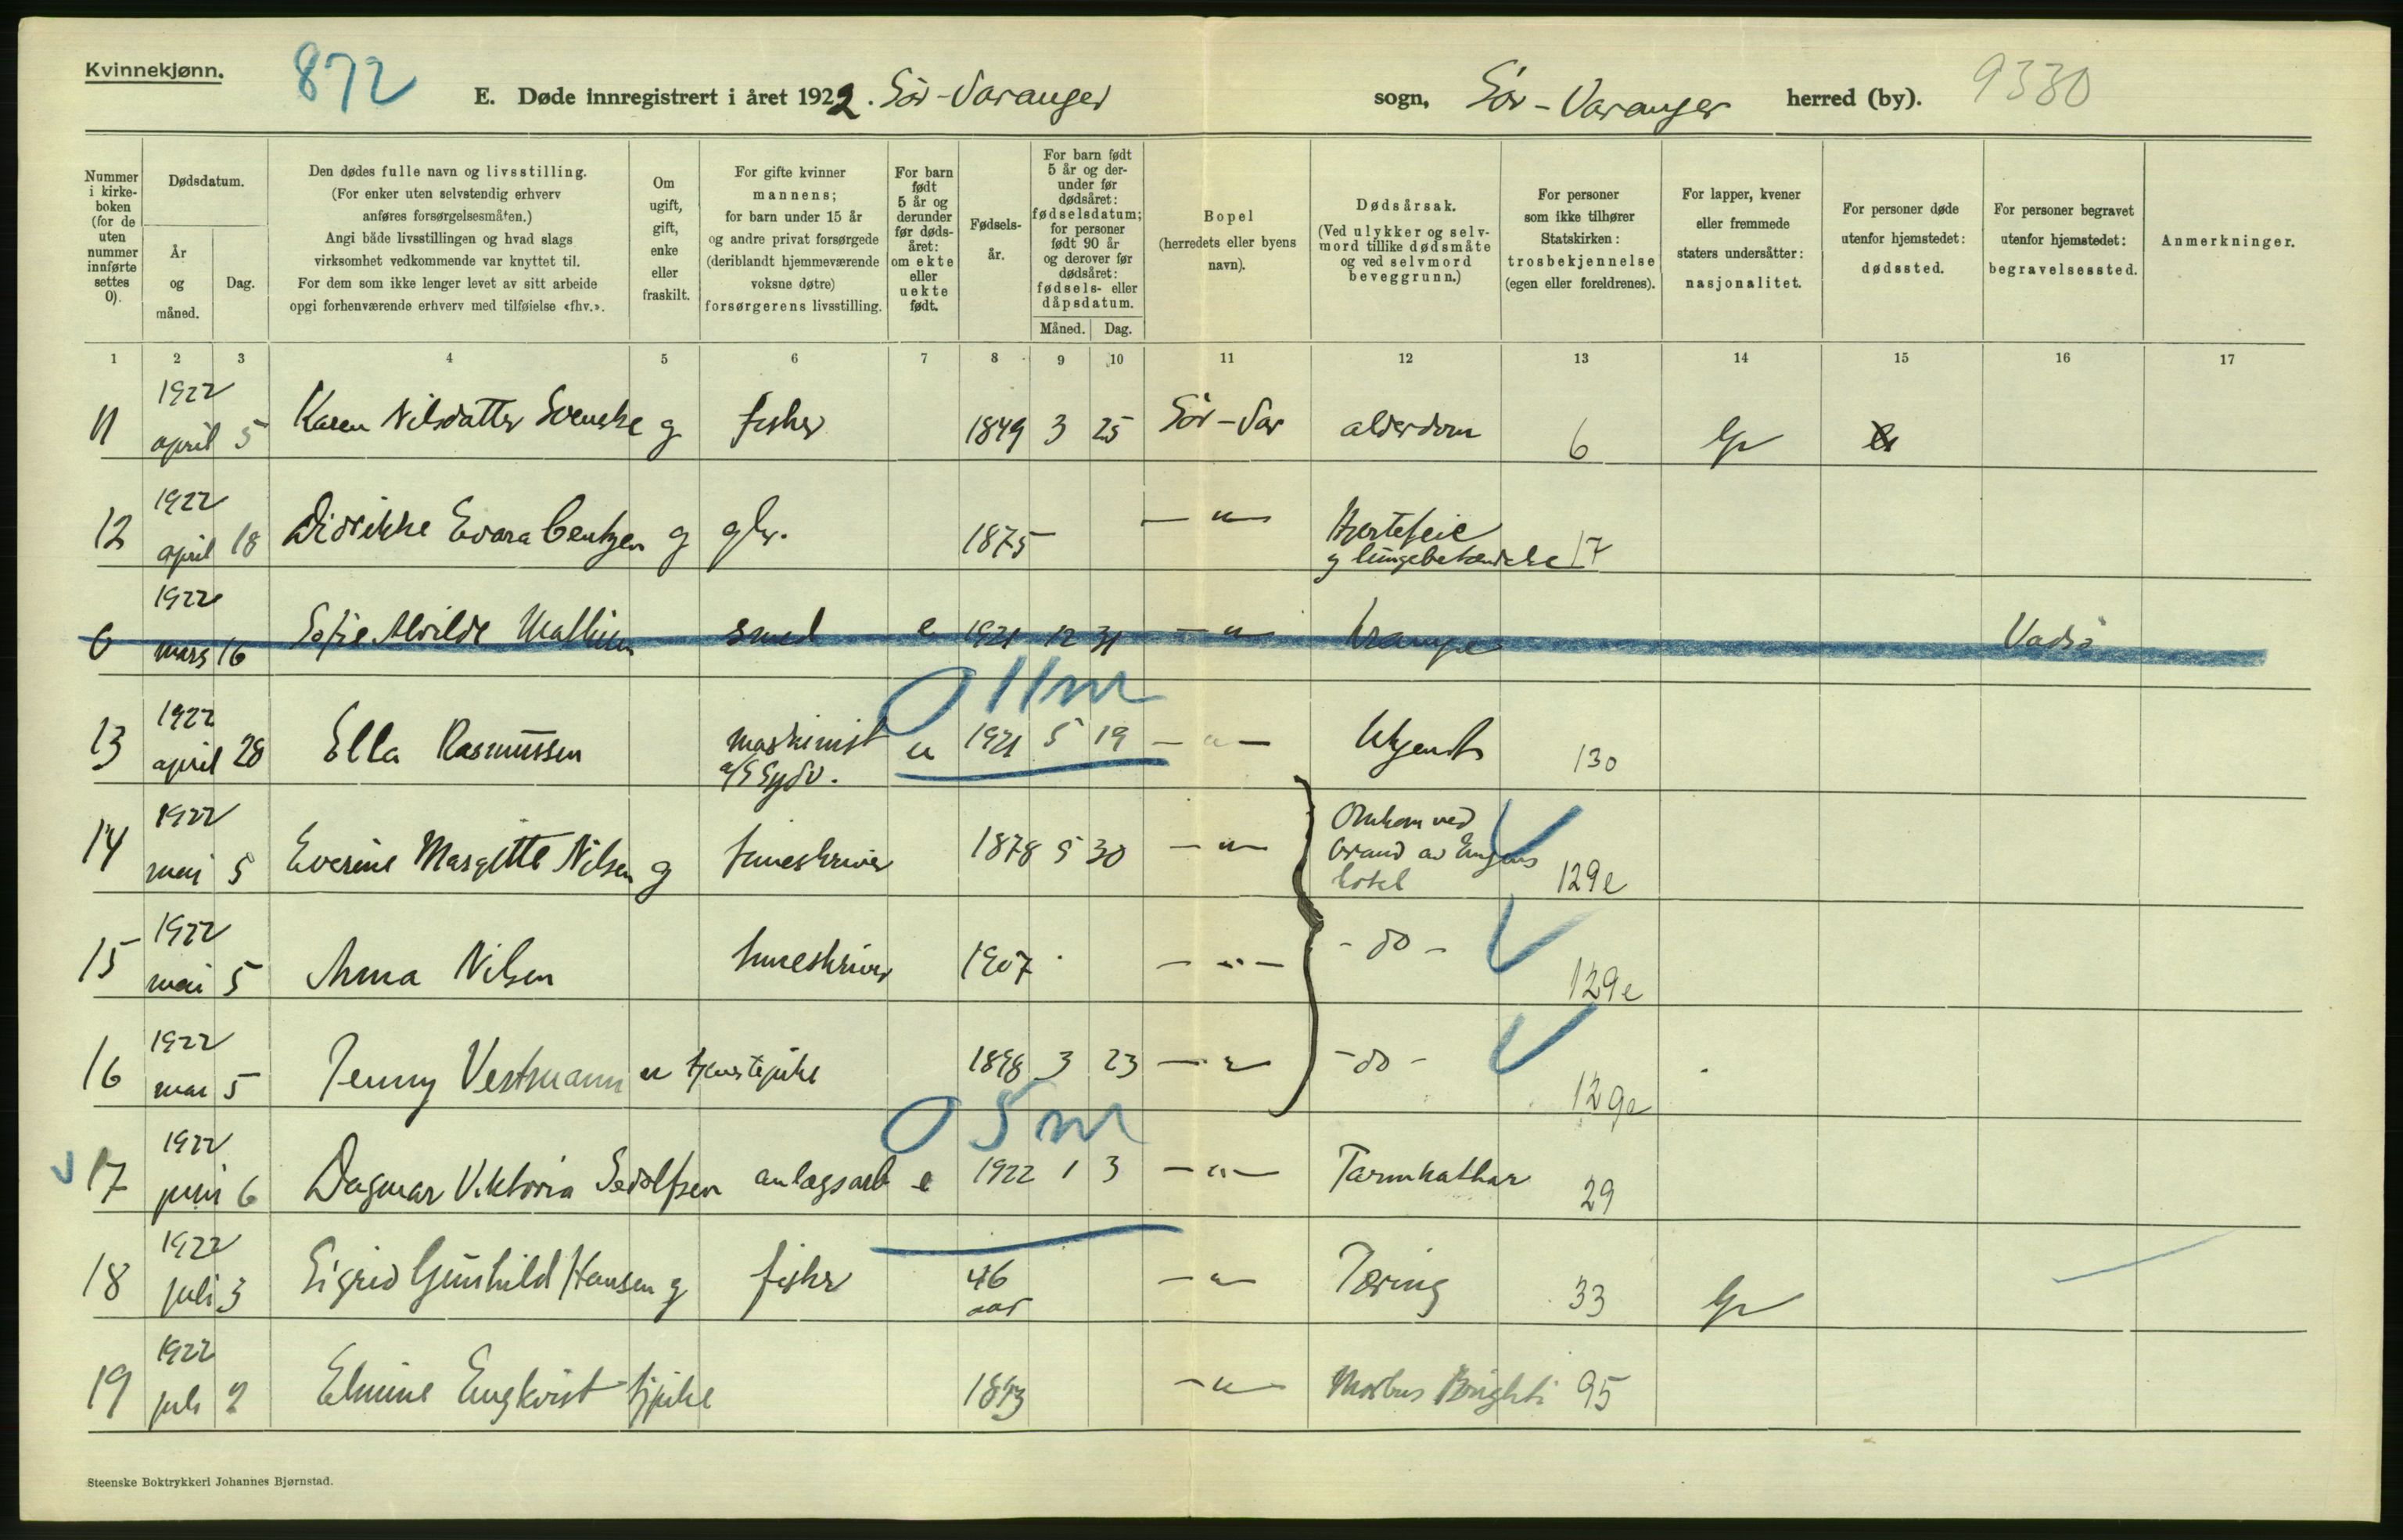 Kvinnekjønn.
872
E. Døde innregistrert i året 1922. Sör-Varanger sogn, Sör-Varanger herred (by). 9330
Nummer i kirke-boken (for de uten nummer innførte settes 0).
Dødsdatum.
År og måned.
Dag.
Den dødes fulle navn og livsstilling.
(For enker uten selvstendig erhverv
anføres forsørgelsesmåten.)
Angi både livsstillingen og hvad slags
virksomhet vedkommende var knyttet til.
For dem som ikke lenger levet av sitt arbeide
opgi forhenværende erhverv med tilføielse «fhv.».
Om ugift, gift, enke eller fraskilt.
For gifte kvinner
mannens;
for barn under 15 år
og andre privat forsørgede
(deriblandt hjemmeværende
voksne døtre)
forsørgerens livsstilling.
For barn født 5 år og derunder før døds-året: om ekte eller uekte født.
Fødsels-år.
For barn født 5 år og der-under før dødsåret: fødselsdatum; for personer født 90 år og derover før dødsåret: fødsels- eller dåpsdatum.
Måned. Dag.
Bopel
(herredets eller byens
navn).
Dødsårsak.
(Ved ulykker og selv-
mord tillike dødsmåte
og ved selvmord
beveggrunn.)
For personer
som ikke tilhører
Statskirken:
trosbekjennelse
(egen eller foreldrenes).
For lapper, kvener
eller fremmede
staters undersåtter:
nasjonalitet.
For personer døde
utenfor hjemstedet:
dødssted.
For personer begravet
utenfor hjemstedet:
begravelsessted.
Anmerkninger.
1 2 3 4 5 6 7 8 9 10 11 12 13 14 15 16 17
11 1922 april 5 Karen Nilsdatter Svenske g fisker 1849 3 25 Sör-Var alderdom 6
12 1922 april 18 Didrikke Evara Bentzen g 1875 — " — Hjertefeil
g lungebetændelse 17
0 1922 mars 16 Sofie Alvilde Mathisen smed e 1921 12 31 — " — Krampe Vadsö
0 11 m
13 1922 april 28 Ella Rasmussen maskinist
a/S Sydv. u 1921 5 19 — " — Ukjendt 130
14 1922 mai 5 Everine Margitte Nilsen g 1878 5 30 — " — Omkom ved
brand av
hotel 129e
15 1922 mai 5 Anna Nilsen 1907 — " — - do - 129e
16 1922 mai 5 Jenny Vestmann u tjenstepike 1898 3 23 — " — - do - 129e
0 5 m
17 1922 juni 6 Dagmar Viktoria Sedolfsen anlægsarb e 1922 1 3 — " — Tarmkathar 29
18 1922 juli 3 Sigrid Gunhild Hansen g fisker 46
aar — " — Tæring 33
19 1922 juli 2 Elmine Engkvist tjpike 1873 — " — Morbus Brighti 95
Steenske Boktrykkeri Johannes Bjørnstad.